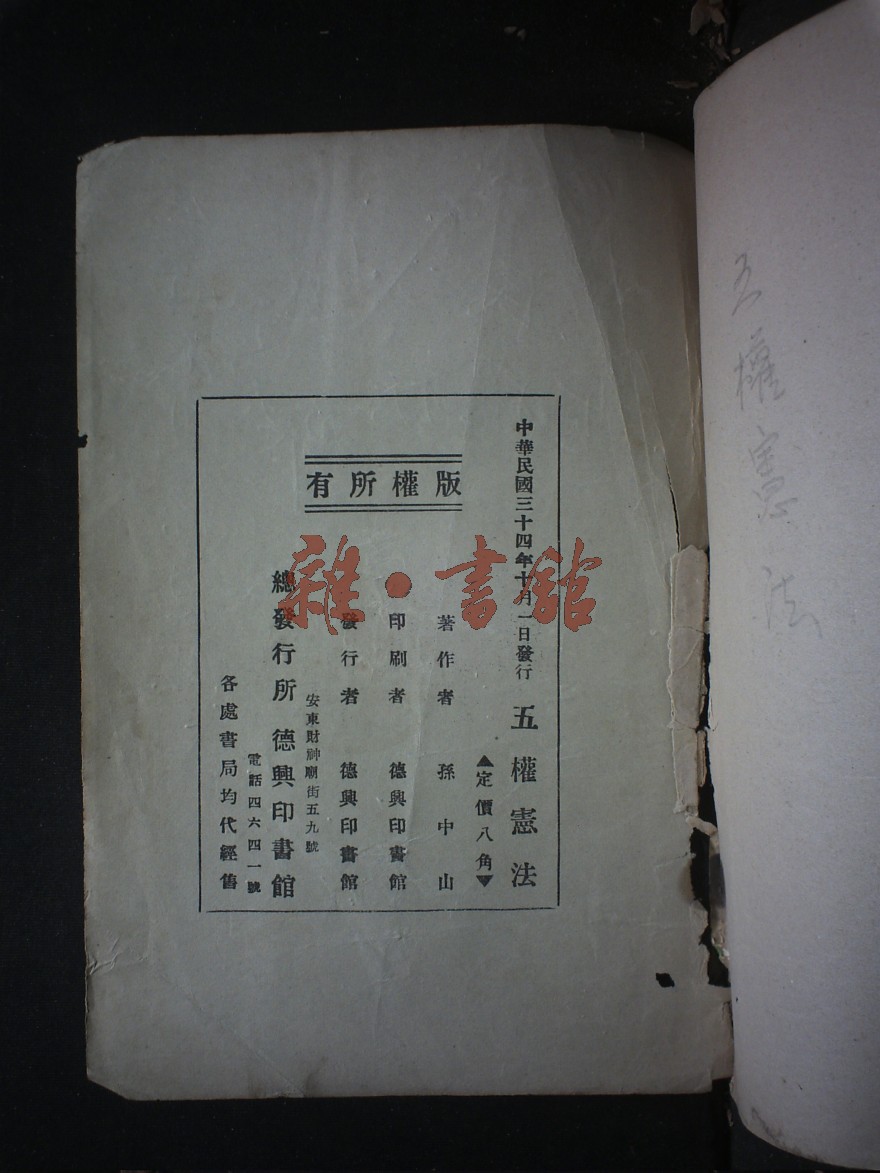 五權憲法
中華民國三十四年十月一日發行
五權憲法
▲定價八角▼
版權所有
著作者 孫中山
印刷者 德興印書館
發行者 德興印書館
安東財神廟街五九號
總發行所 德興印書館
電話四六四一號
各處書局均代經售
雜·書館